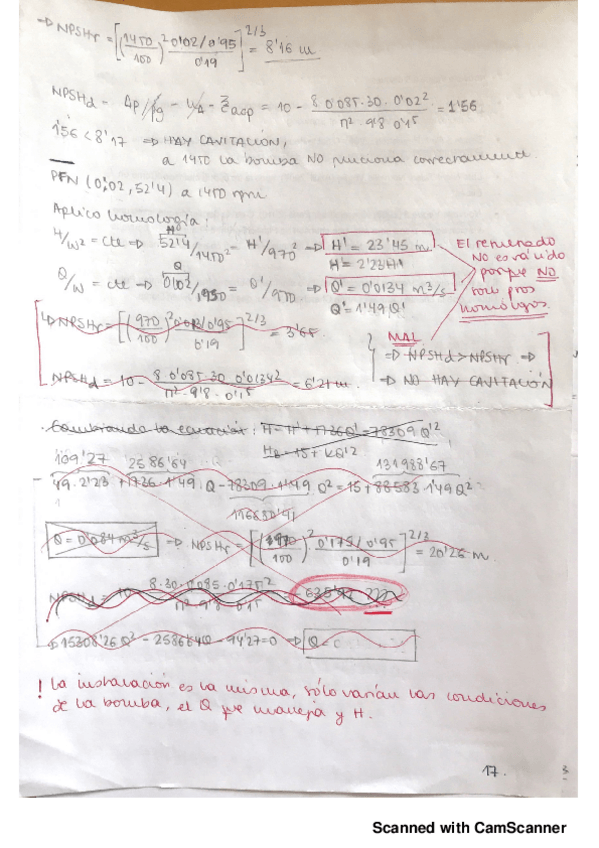 → NPSHr = [(1450/100)² 0'02/0'95 / 0'19]^2/3 = 8'16 m
NPSHd = Δp/ρg - HA - Σasp = 10 - 8·0'085·30·0'02² / π²·9'8·0'1⁵ = 1'56
1'56 < 8'17 ⇒ HAY CAVITACIÓN,
a 1450 la bomba NO funciona correctamente.
PFN (0'02, 52'4) a 1450 rpm
Aplico homología:
H/w² = cte ⇒ 52'4/1450² = H'/970² → H' = 23'45 m
H = 2'23H'
Q/w = cte → 0'02/1450 = Q'/970 → Q' = 0'0134 m³/s
Q = 1'49 Q'
El remenado
NO es válido
porque NO
son ptos
homólogos.
NPSHr = [(970/100)² 0'013/0'95 / 0'19]^2/3 = 3'65
NPSHd = 10 - 8·0'085·30·0'0134² / π²·9'8·0'1⁵ = 6'21 m
MAL
⇒ NPSHd > NPSHr ⇒
⇒ NO HAY CAVITACIÓN
Cambiando la ecuación: = 78309 Q'²
109'27 2586'64 131988'67
49·2'23 + 1736·1'49·Q - 78309·1'49 Q² = 15 + 88583·1'49 Q²
116680'41
Q = 0'084 m³/s ⇒ NPSHr = [( /100)² 0'175/0'95 / 0'19]^2/3 = 20'26 m
8·30·0'085·0'175² / π²·9'8·0'1⁵
⇒ 15308'26 Q² - 258664Q - 94'27 = 0 ⇒ Q =
! La instalación es la misma, sólo varían las condiciones
de la bomba, el Q que maneja y H.
17.
3
Scanned with CamScanner